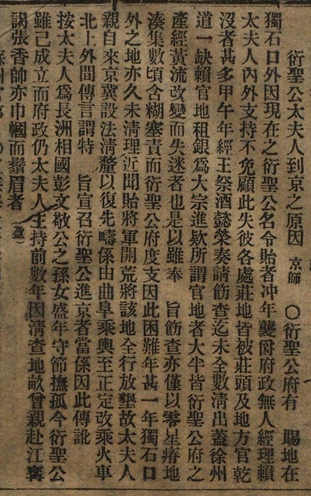 衍聖公太夫人到京之原因　京師　○衍聖公府有　賜地在
獨石口外因現在之衍聖公名令貽者冲年襲爵府政無人經理賴
太夫人內外支持不免顧此失彼各處莊地皆被莊頭及地方官乾
沒者甚多甲午年經王祭酒懿榮奏請飭查迄未全數清出蓋徐州
道一缺賴官地租銀爲大宗進欵所謂官地者大半皆衍聖公之
產經黃流改變而失迷者也是以雖奉　旨飭查亦僅以零星瘠地
湊集數頃含糊塞責而衍聖公府度支因此困難年甚一年獨石口
外之地亦久未清理近聞貽將軍開荒將該地全行放墾故太夫人
親自來京冀設法清釐以復先疇係由曲阜乘輿至正定改乘火車
北上外間傳言謂特　旨宣召衍聖公進京者當係因此傳訛
按太夫人爲長洲相國彭文敬公之孫女盛年守節撫孤今衍聖公
雖已成立而府政仍太夫人主持前數年因清查地畝曾親赴江寗
謁張香帥亦巾幗而鬚眉者